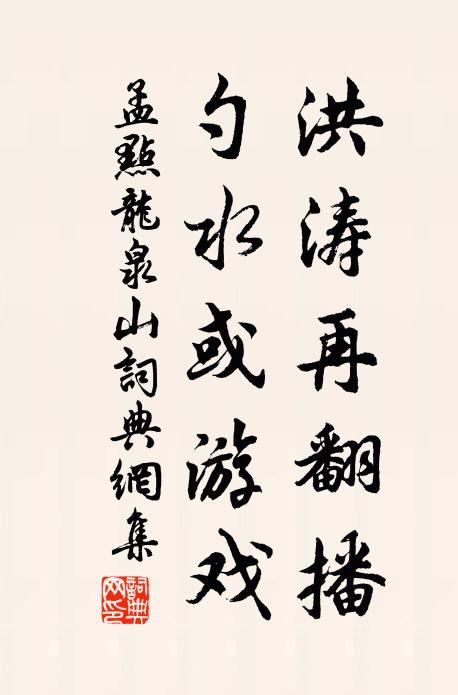 洪涛再翻播
勺水或游戏
孟點龍泉山詞典網集
詞典
网印